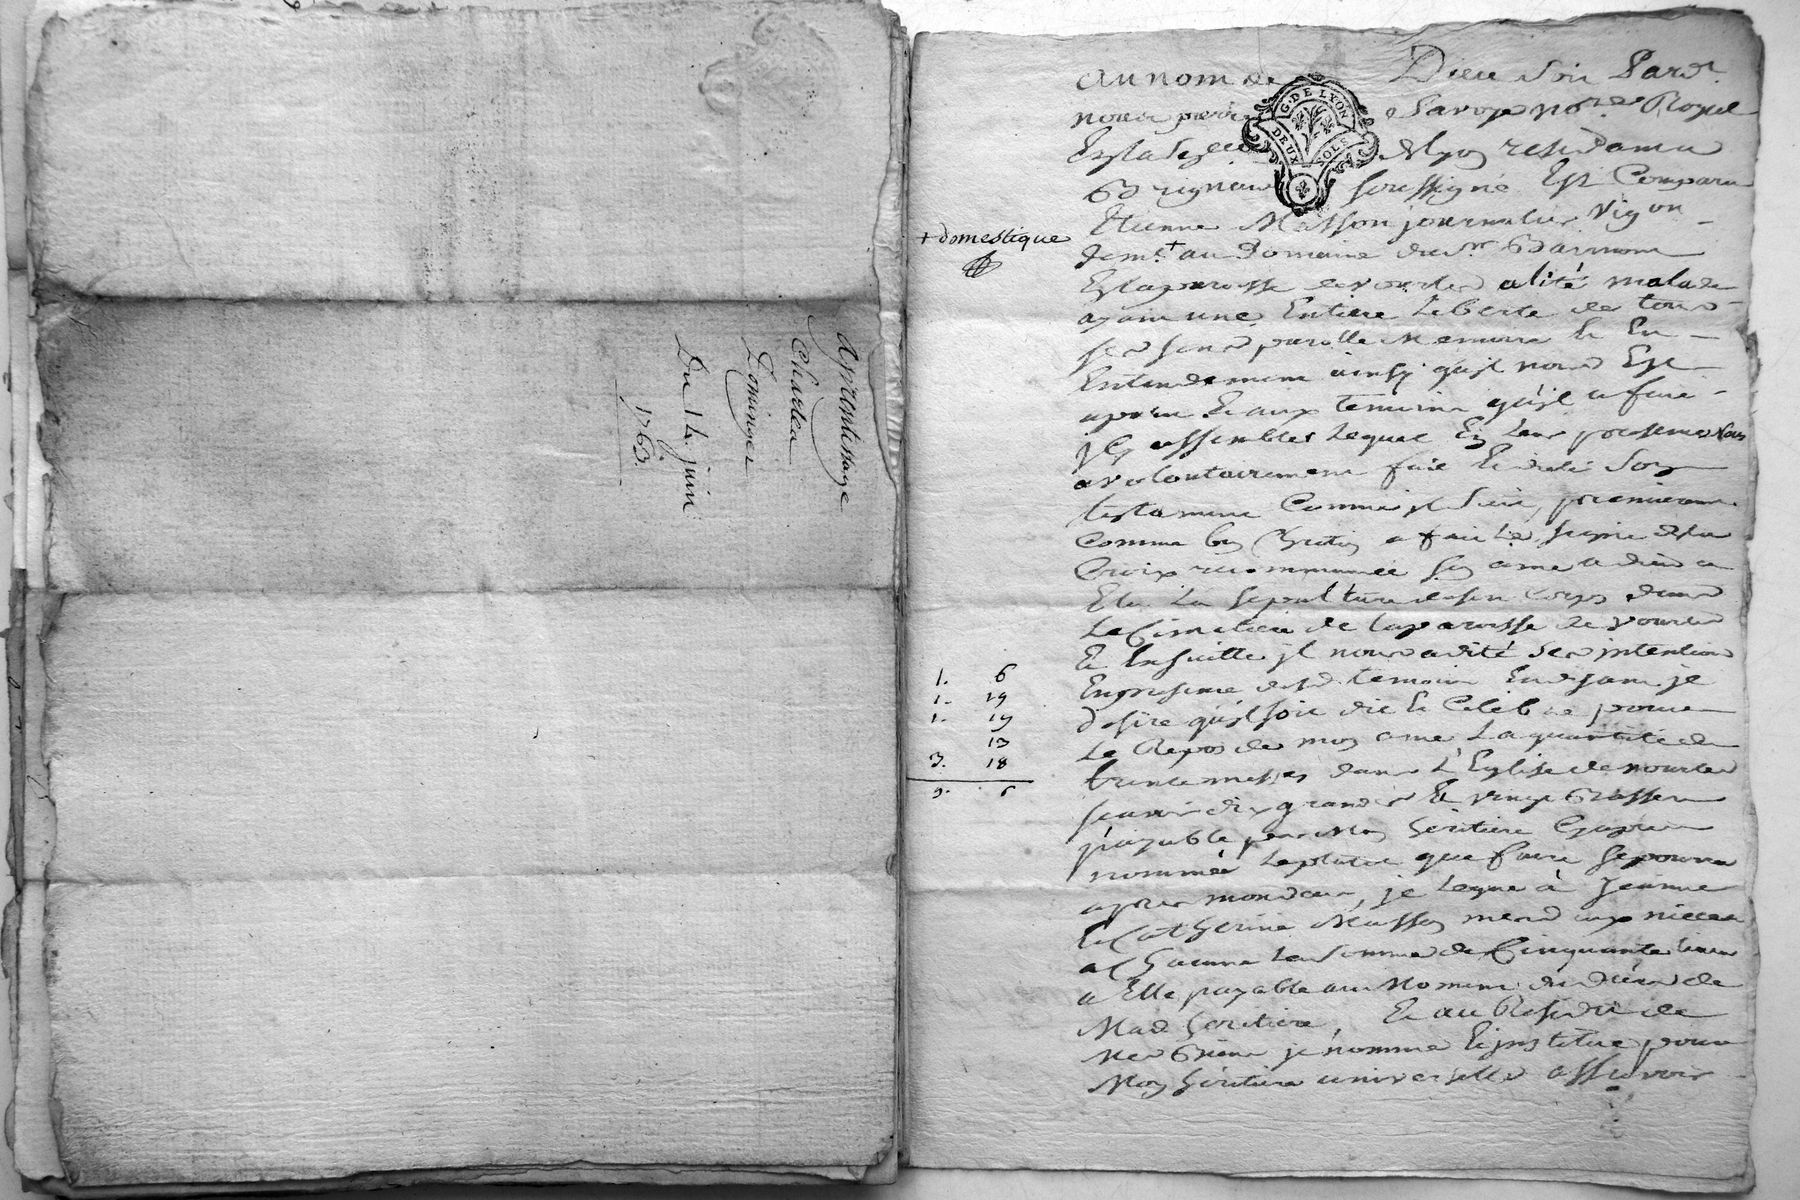 aprentissage
Charles
Dominget
Du 14 juin
1763.
au nom de Dieu soit Pardt
nous pierre Savoye nore Royal
En la de Lyon residant a
Brignais soussigné Est Comparu
Etienne Masson journalier Vigon
+ domestique
demt + au domaine du sr
En la paroisse de vourles alité malade
ayant une Entiere Liberté de tous
ses sens parolle Memoire Et En
Entendement ainsy qu'il nous Est
aparu Et aux temoins qu'il a fait
assembler Lequel En Leur presence
a volontairement fait Et dicté Son
testament Comme il suit, premierement
Comme bon Chretien a fait Le signe de la
Croix recommandé son ame a dieu a
Elu La sepulture de son corps dans
Le Cimetiere de la paroisse de vourles
Et Ensuitte il nous a dité ses intentions
En presence desd temoins En disant je
desire qu'il soit dit Et Celebré pour
Le Repos de mon ame La quantité de
trente messes dans L'Eglise de vourles
scavoir dix grandes Et vingt Basses
payable par Mon heritiere Cyapres
nommée Le plutot que faire se pourra
apres mon deces, je Legue à Jeanne
Et Catherine Masson mes deux nieces
a Chacune La somme de Cinquante livres
a Elle payable au Moment du deces de
Mad heritiere, Et au Residu de
Mes Biens je nomme Et institue pour
Mon heritiere universelle assavoir
1. 6
1. 19
1. 19
13
3. 18
9. 6
G. DE LYON
DEUX SOLS